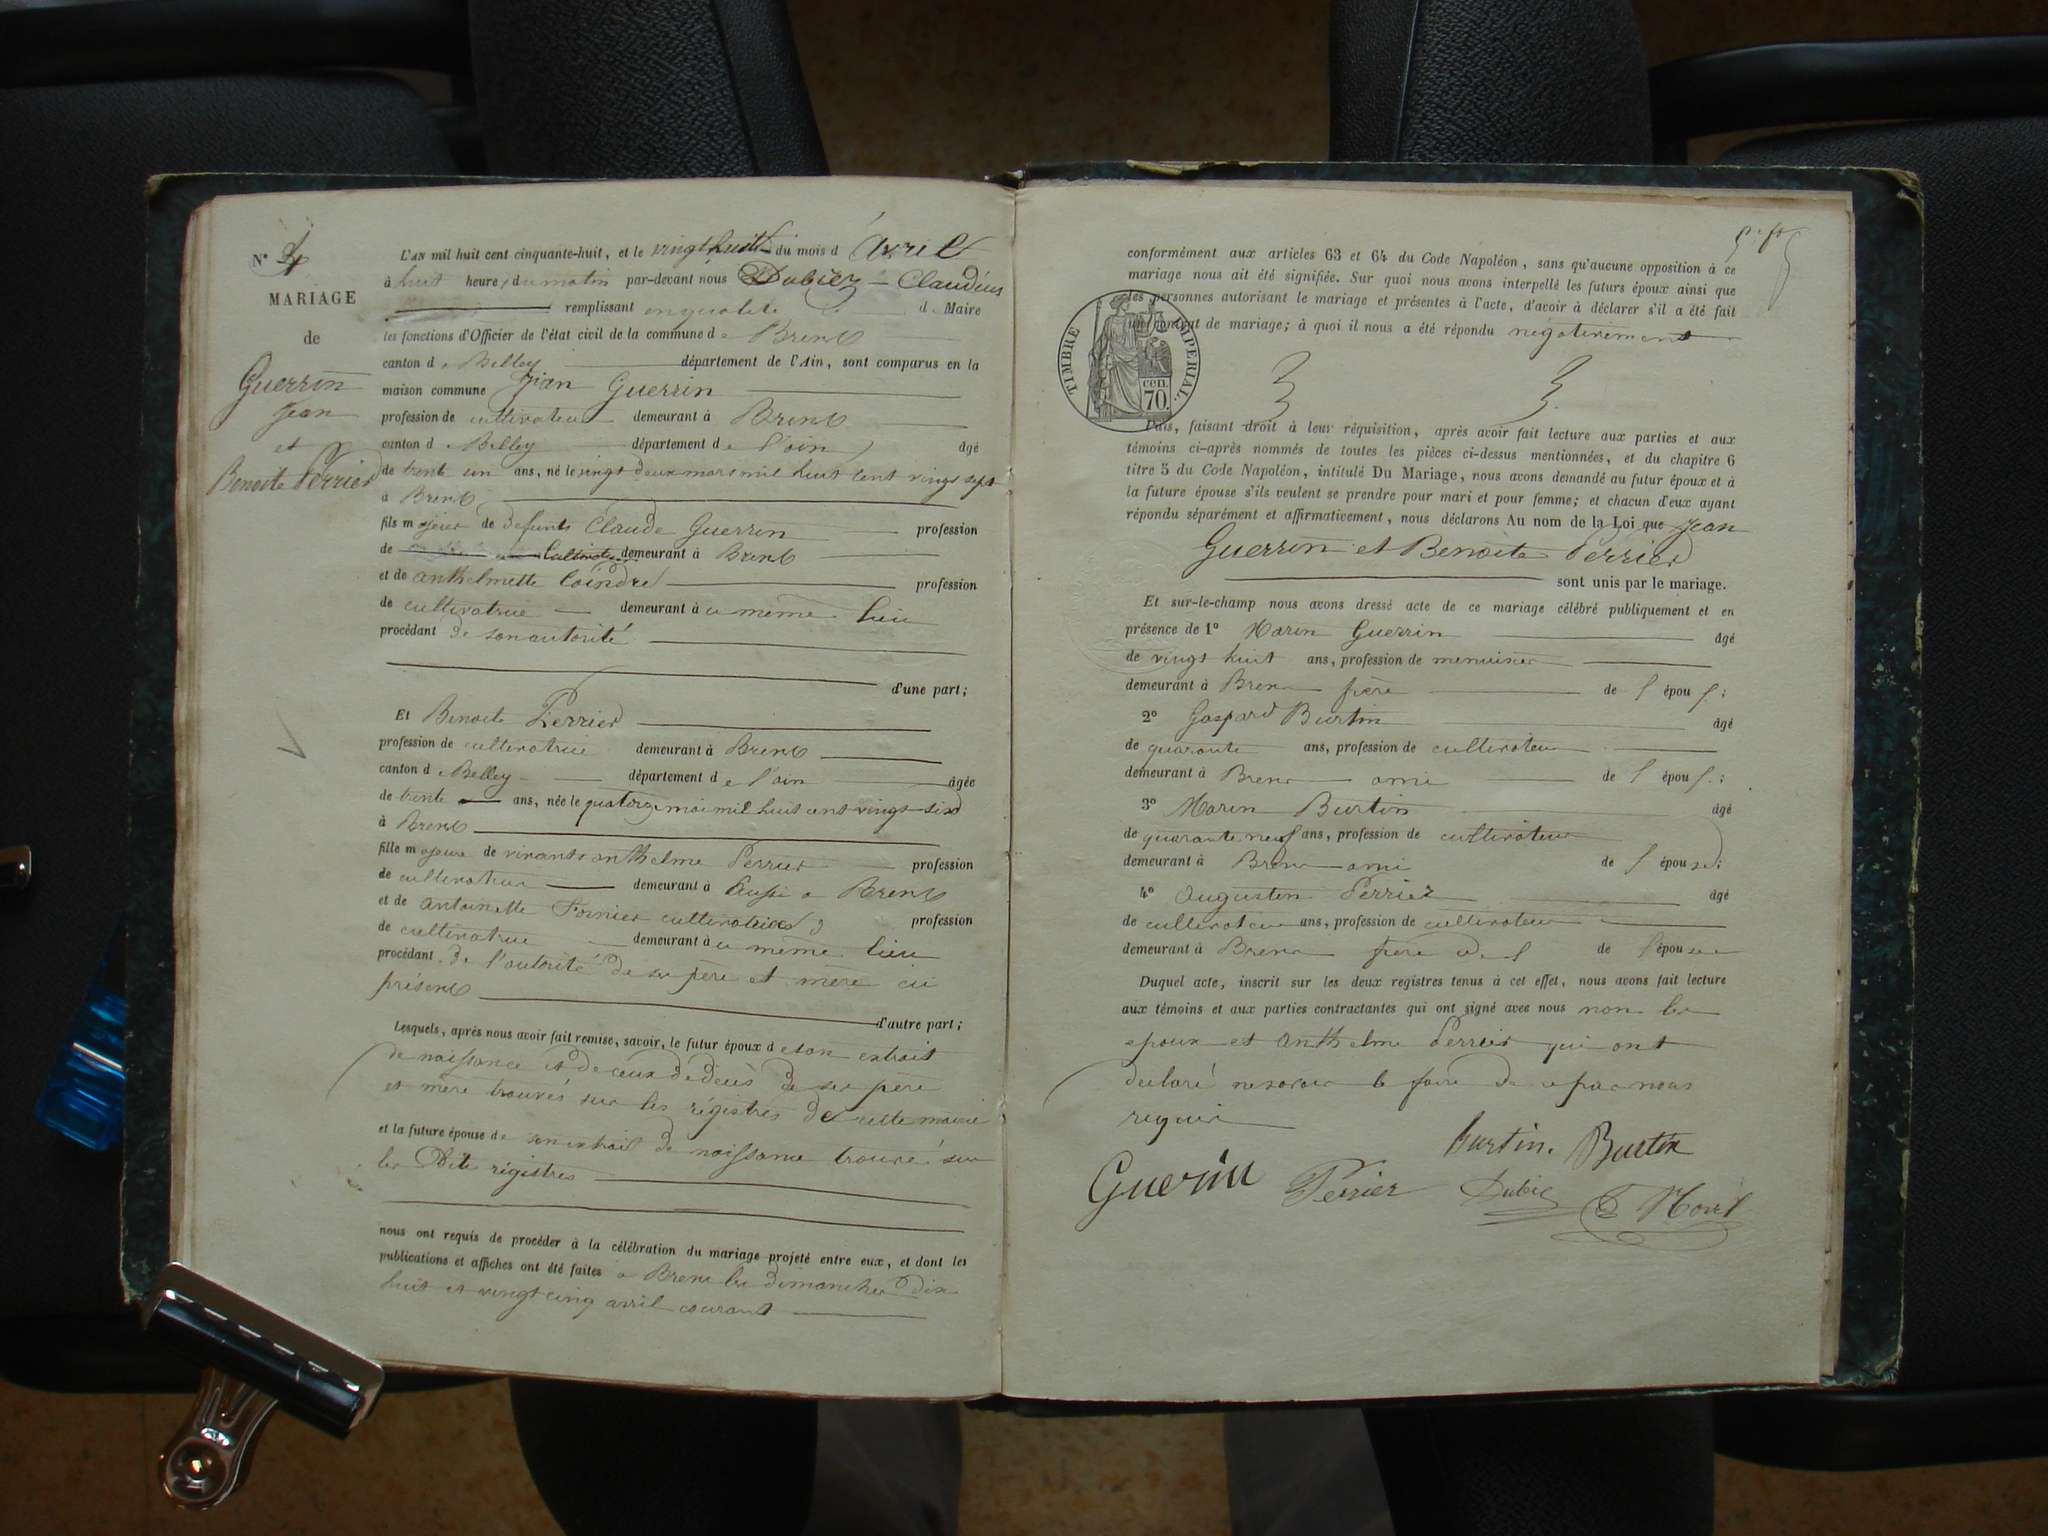 N° 4
MARIAGE
de
Guerrin
Jean
et
Benoite Perrier
L'AN mil huit cent cinquante-huit, et le vingt huit du mois d'Avril
à huit heure du matin par-devant nous Dubiez Claudius
remplissant en qualité de Maire
les fonctions d'Officier de l'état civil de la commune de Brens
canton de Belley département de l'Ain, sont comparus en la
maison commune Jean Guerrin
profession de cultivateur demeurant à Brens
canton de Belley département de l'ain, âgé
de trente un ans, né le vingt deux mars mil huit cent vingt sept
à Brens
fils majeur de defunts Claude Guerrin profession
de Cultivateur demeurant à Brens
et de anthelmette Coindre profession
de cultivatrice demeurant à ce même lieu
procédant de son autorité
d'une part;
Et Benoite Perrier
profession de cultivatrice demeurant à Brens
canton de Belley département de l'ain âgée
de trente ans, née le quatorze mai mil huit cent vingt six
à Brens
fille majeure de vivants anthelme Perrier profession
de cultivateur demeurant à Brens
et de antoinette Fornier cultivatrice profession
de cultivatrice demeurant à ce même lieu
procédant de l'autorité de ses père et mère ici
présents
d'autre part;
Lesquels, après nous avoir fait remise, savoir, le futur époux de son extrait
de naissance et de ceux de décès de ses père
et mère trouvés sur les régistres de cette mairie
et la future épouse de son extrait de naissance trouvé sur
les dits régistres
nous ont requis de procéder à la célébration du mariage projeté entre eux, et dont les
publications et affiches ont été faites à Brens les dimanches dix
huit et vingt cinq avril courant
conformément aux articles 63 et 64 du Code Napoléon, sans qu'aucune opposition à ce
mariage nous ait été signifiée. Sur quoi nous avons interpellé les futurs époux ainsi que
les personnes autorisant le mariage et présentes à l'acte, d'avoir à déclarer s'il a été fait
un contrat de mariage; à quoi il nous a été répondu négativement
TIMBRE IMPERIAL
70 cen.
Puis, faisant droit à leur réquisition, après avoir fait lecture aux parties et aux
témoins ci-après nommés de toutes les pièces ci-dessus mentionnées, et du chapitre 6
titre 5 du Code Napoléon, intitulé Du Mariage, nous avons demandé au futur époux et à
la future épouse s'ils veulent se prendre pour mari et pour femme; et chacun d'eux ayant
répondu séparément et affirmativement, nous déclarons Au nom de la Loi que Jean
Guerrin et Benoite Perrier
sont unis par le mariage.
Et sur-le-champ nous avons dressé acte de ce mariage célébré publiquement et en
présence de 1° Marin Guerrin âgé
de vingt huit ans, profession de menuisier
demeurant à Brens frère de l'époux;
2° Gaspard Burtin âgé
de quarante ans, profession de cultivateur
demeurant à Brens ami de l'époux;
3° Marin Burtin âgé
de quarante neuf ans, profession de cultivateur
demeurant à Brens ami de l'épouse;
4° Augustin Perrier âgé
de cultivateur ans, profession de cultivateur
demeurant à Brens frère de l de l'épouse
Duquel acte, inscrit sur les deux registres tenus à cet effet, nous avons fait lecture
aux témoins et aux parties contractantes qui ont signé avec nous non les
epoux et Anthelme Perrier qui ont
declaré ne savoir le faire de ce par nous
requis
Burtin. Burtin
Guerrin Perrier Dubiez Morel